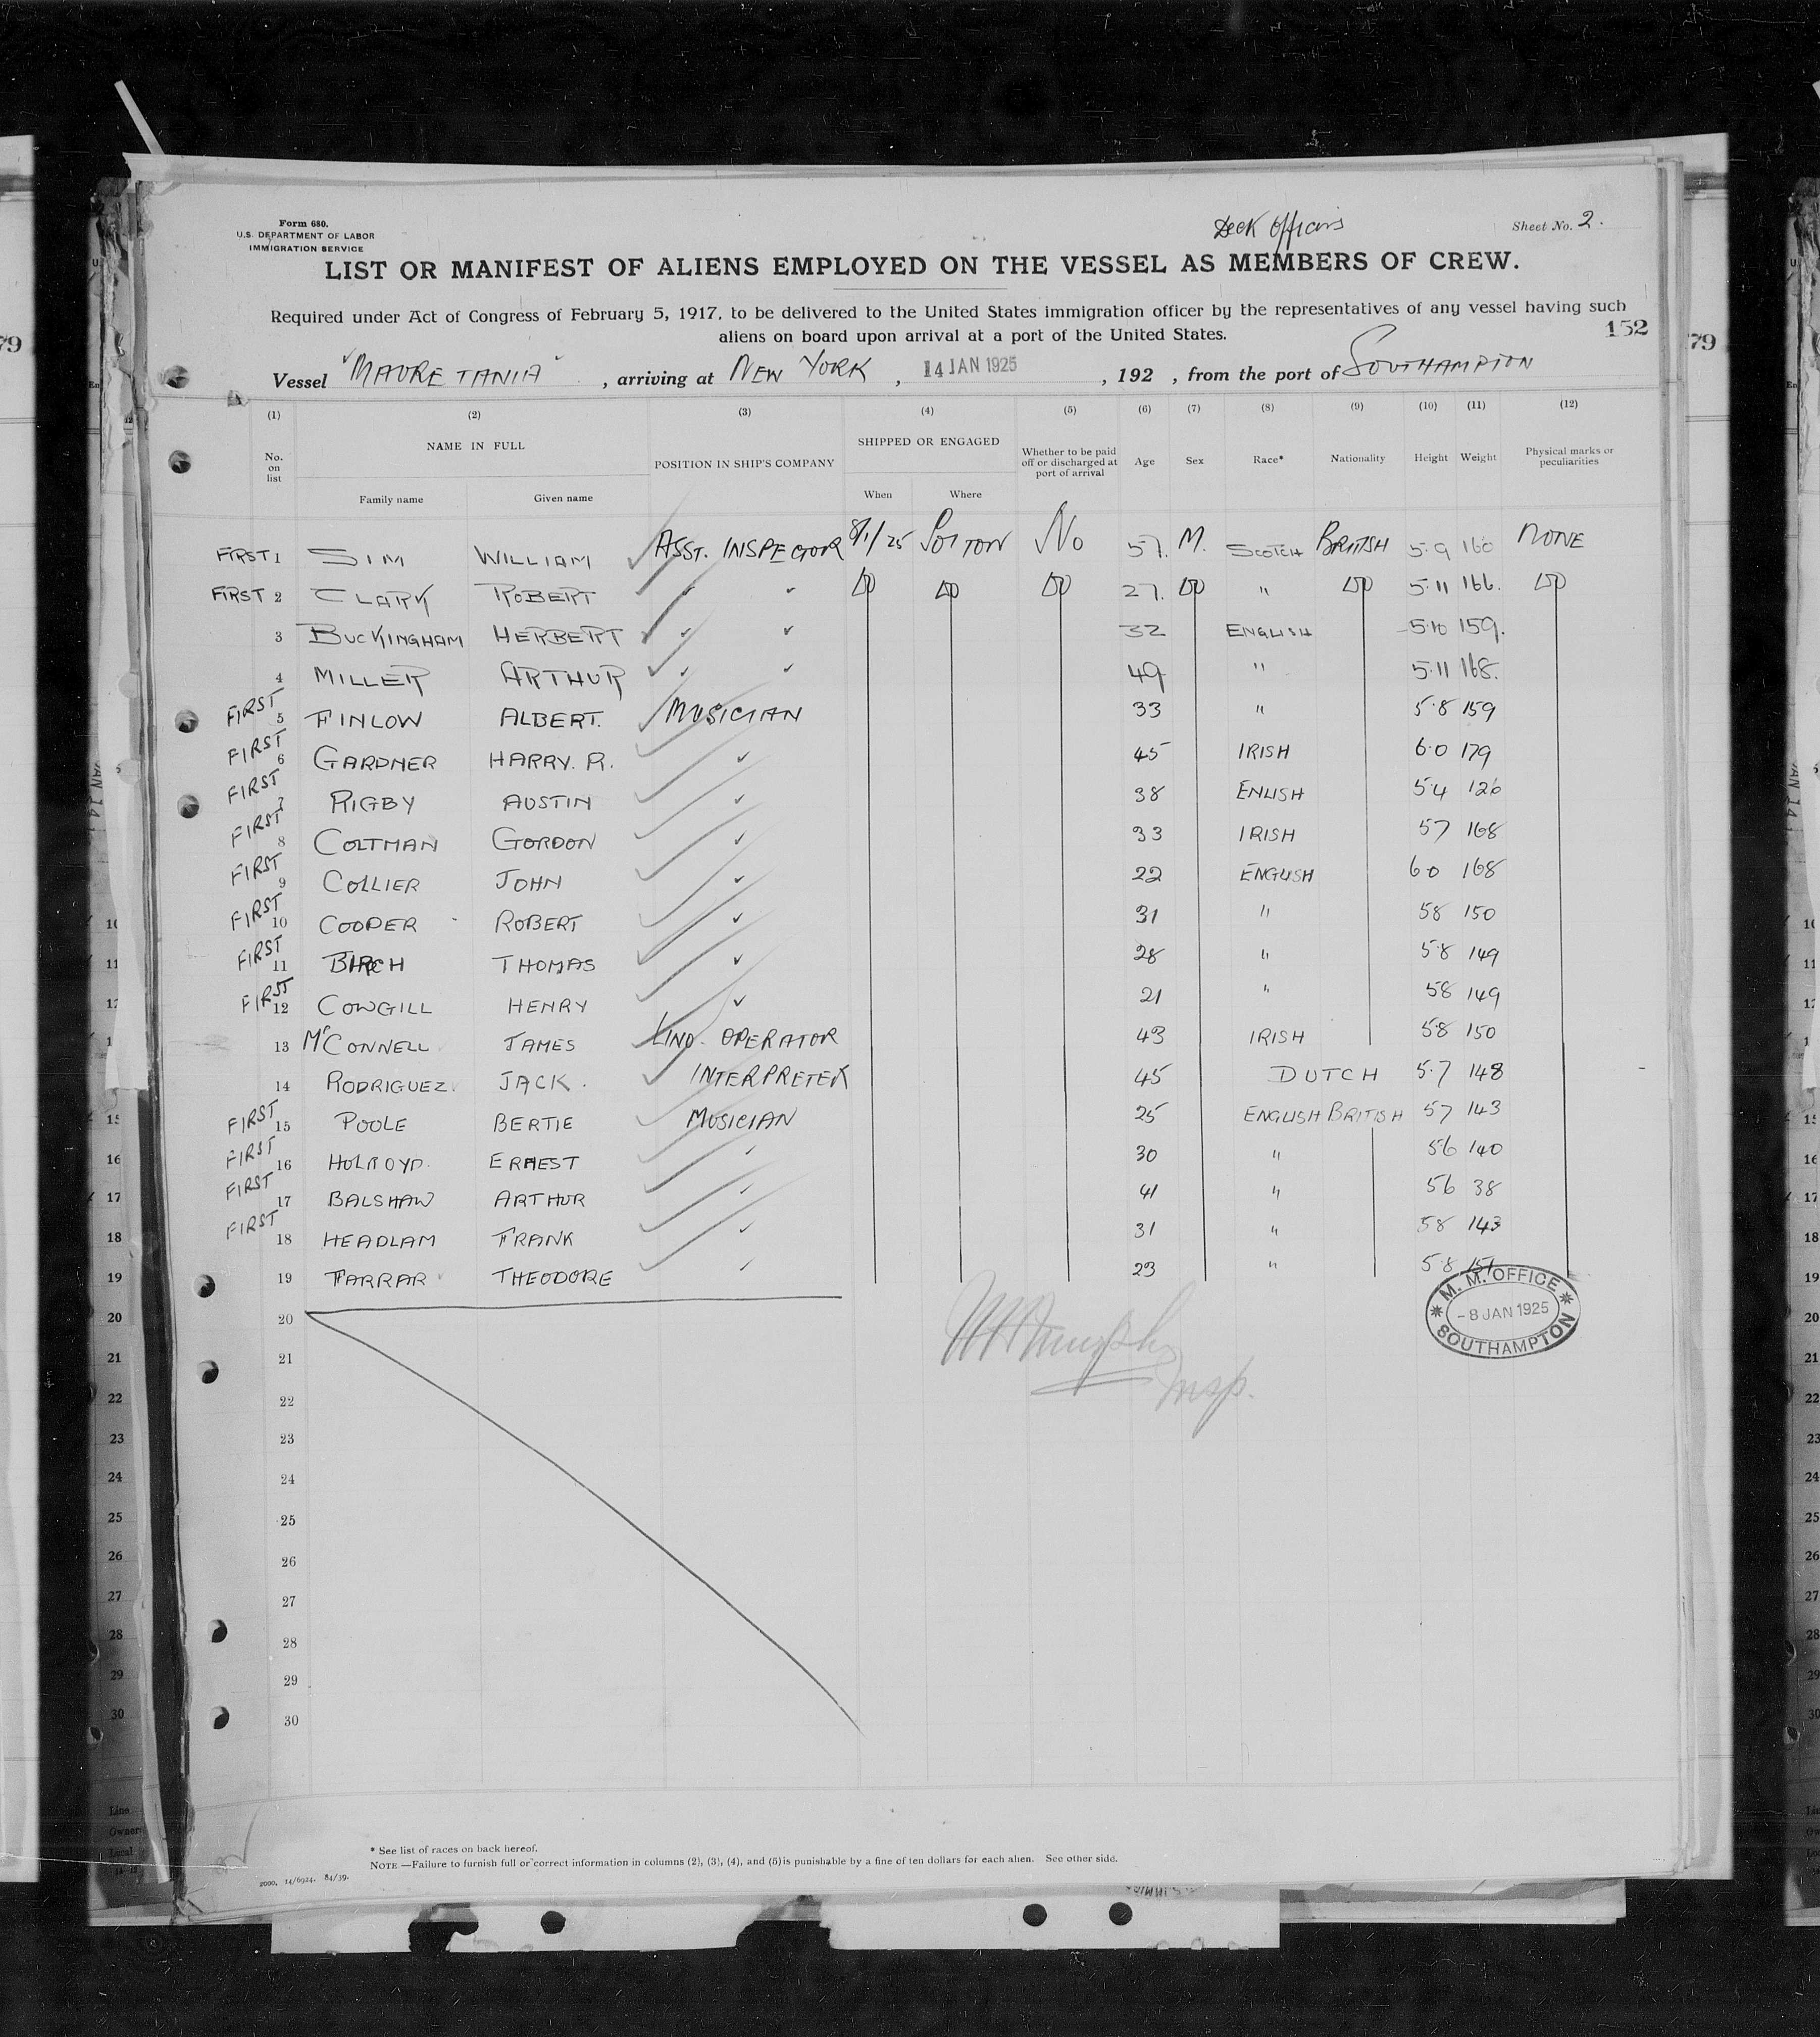 Form 680.
U.S. DEPARTMENT OF LABOR
IMMIGRATION SERVICE
Deck Officers
Sheet No. 2.
LIST OR MANIFEST OF ALIENS EMPLOYED ON THE VESSEL AS MEMBERS OF CREW.
Required under Act of Congress of February 5, 1917, to be delivered to the United States immigration officer by the representatives of any vessel having such
aliens on board upon arrival at a port of the United States.
152
Vessel "MAURETANIA", arriving at NEW YORK, 14 JAN 1925, 192 , from the port of SOUTHAMPTON
(1) (2) (3) (4) (5) (6) (7) (8) (9) (10) (11) (12)
No. on list NAME IN FULL POSITION IN SHIP'S COMPANY SHIPPED OR ENGAGED Whether to be paid off or discharged at port of arrival Age Sex Race* Nationality Height Weight Physical marks or peculiarities
Family name Given name When Where
FIRST 1 SIM WILLIAM ASST. INSPECTOR 8/1/25 SOTON NO 57. M. SCOTCH BRITISH 5.9 160 NONE
FIRST 2 CLARK ROBERT " " DO DO DO 27. DO " DO 5.11 166. DO
3 BUCKINGHAM HERBERT " " 32 ENGLISH 5.10 159.
4 MILLER ARTHUR " " 49 " 5.11 168.
FIRST 5 FINLOW ALBERT. MUSICIAN 33 " 5.8 159
FIRST 6 GARDNER HARRY. R. " 45 IRISH 6.0 179
FIRST 7 RIGBY AUSTIN " 38 ENLISH 5.4 126
FIRST 8 COLTMAN GORDON " 33 IRISH 57 168
FIRST 9 COLLIER JOHN " 22 ENGLISH 60 168
FIRST 10 COOPER ROBERT " 31 " 58 150
FIRST 11 BIRCH THOMAS " 28 " 5.8 149
FIRST 12 COWGILL HENRY " 21 " 58 149
13 McCONNELL JAMES LINO. OPERATOR 43 IRISH 5.8 150
14 RODRIGUEZ JACK. INTERPRETER 45 DUTCH 5.7 148
FIRST 15 POOLE BERTIE MUSICIAN 25 ENGLISH BRITISH 57 143
FIRST 16 HOLROYD. ERNEST " 30 " 56 140
FIRST 17 BALSHAW ARTHUR " 41 " 56 38
FIRST 18 HEADLAM FRANK " 31 " 58 143
19 FARRAR THEODORE " 23 " 5.8 151
M. M. OFFICE
-8 JAN 1925
SOUTHAMPTON
Insp.
20
21
22
23
24
25
26
27
28
29
30
* See list of races on back hereof.
NOTE —Failure to furnish full or correct information in columns (2), (3), (4), and (5) is punishable by a fine of ten dollars for each alien. See other side.
2000. 14/6924. 84/39.
79
79